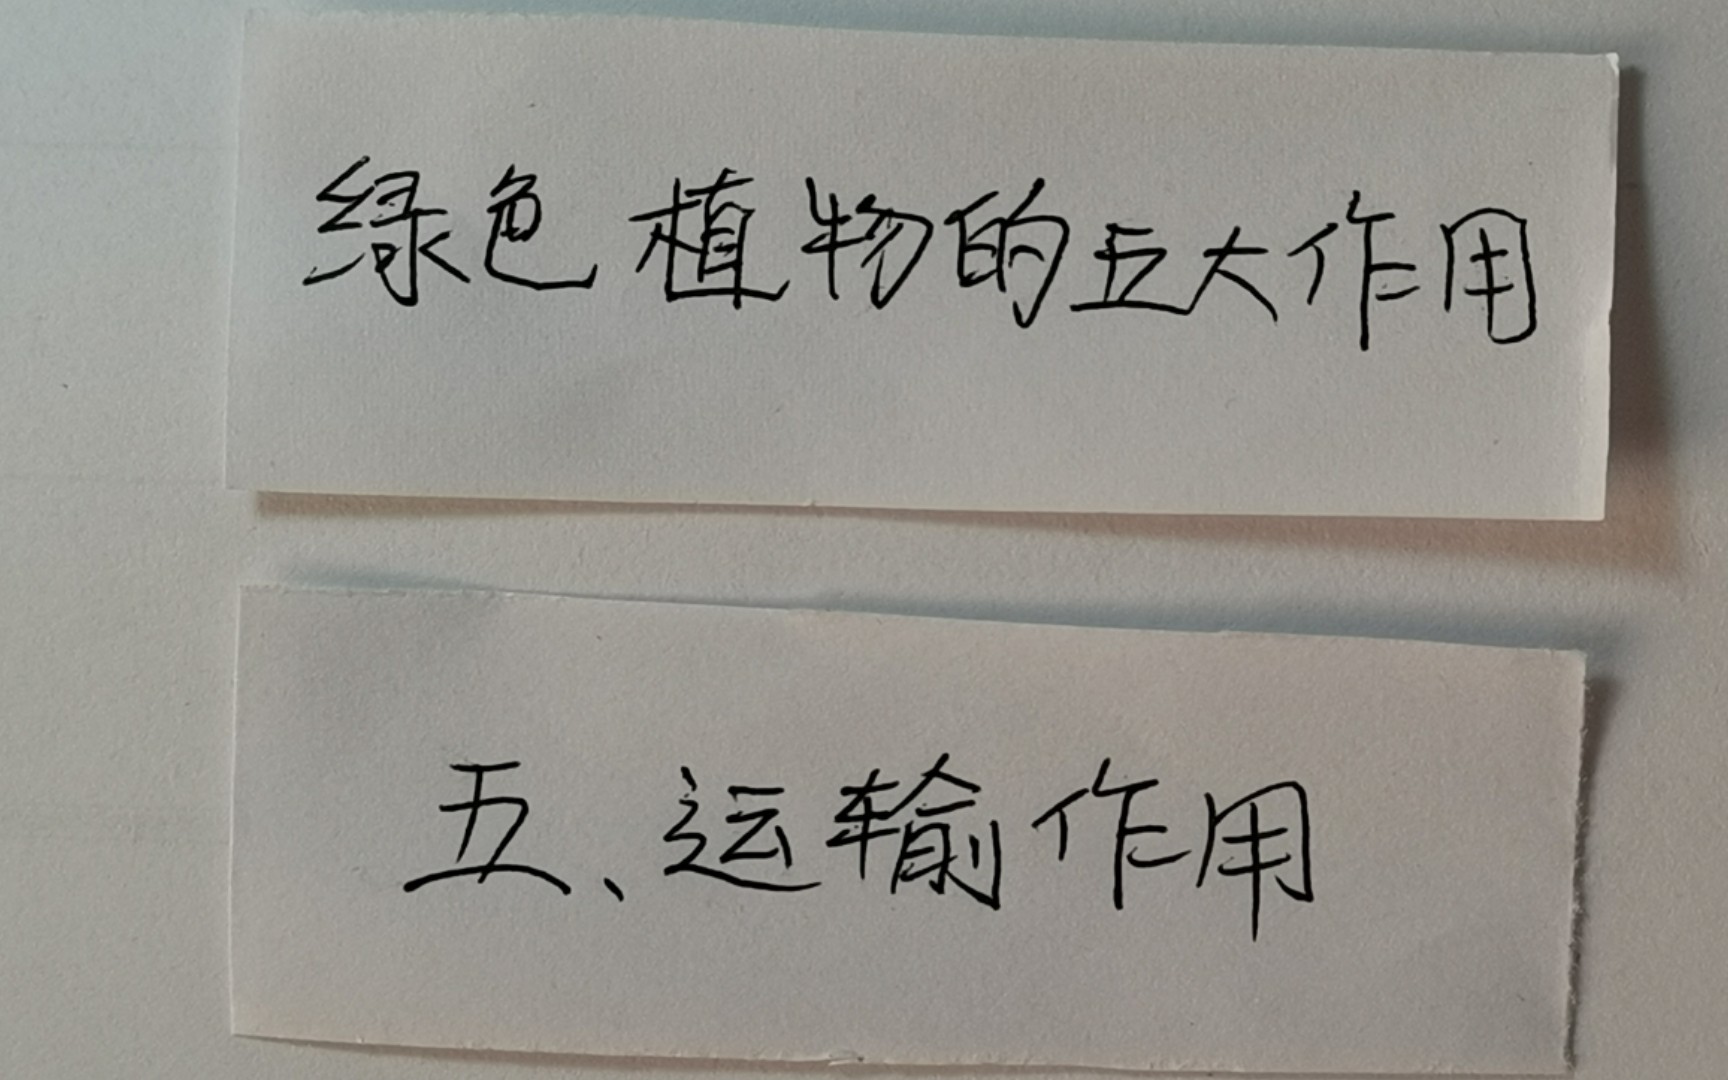 绿色植物的五大作用
五、运输作用